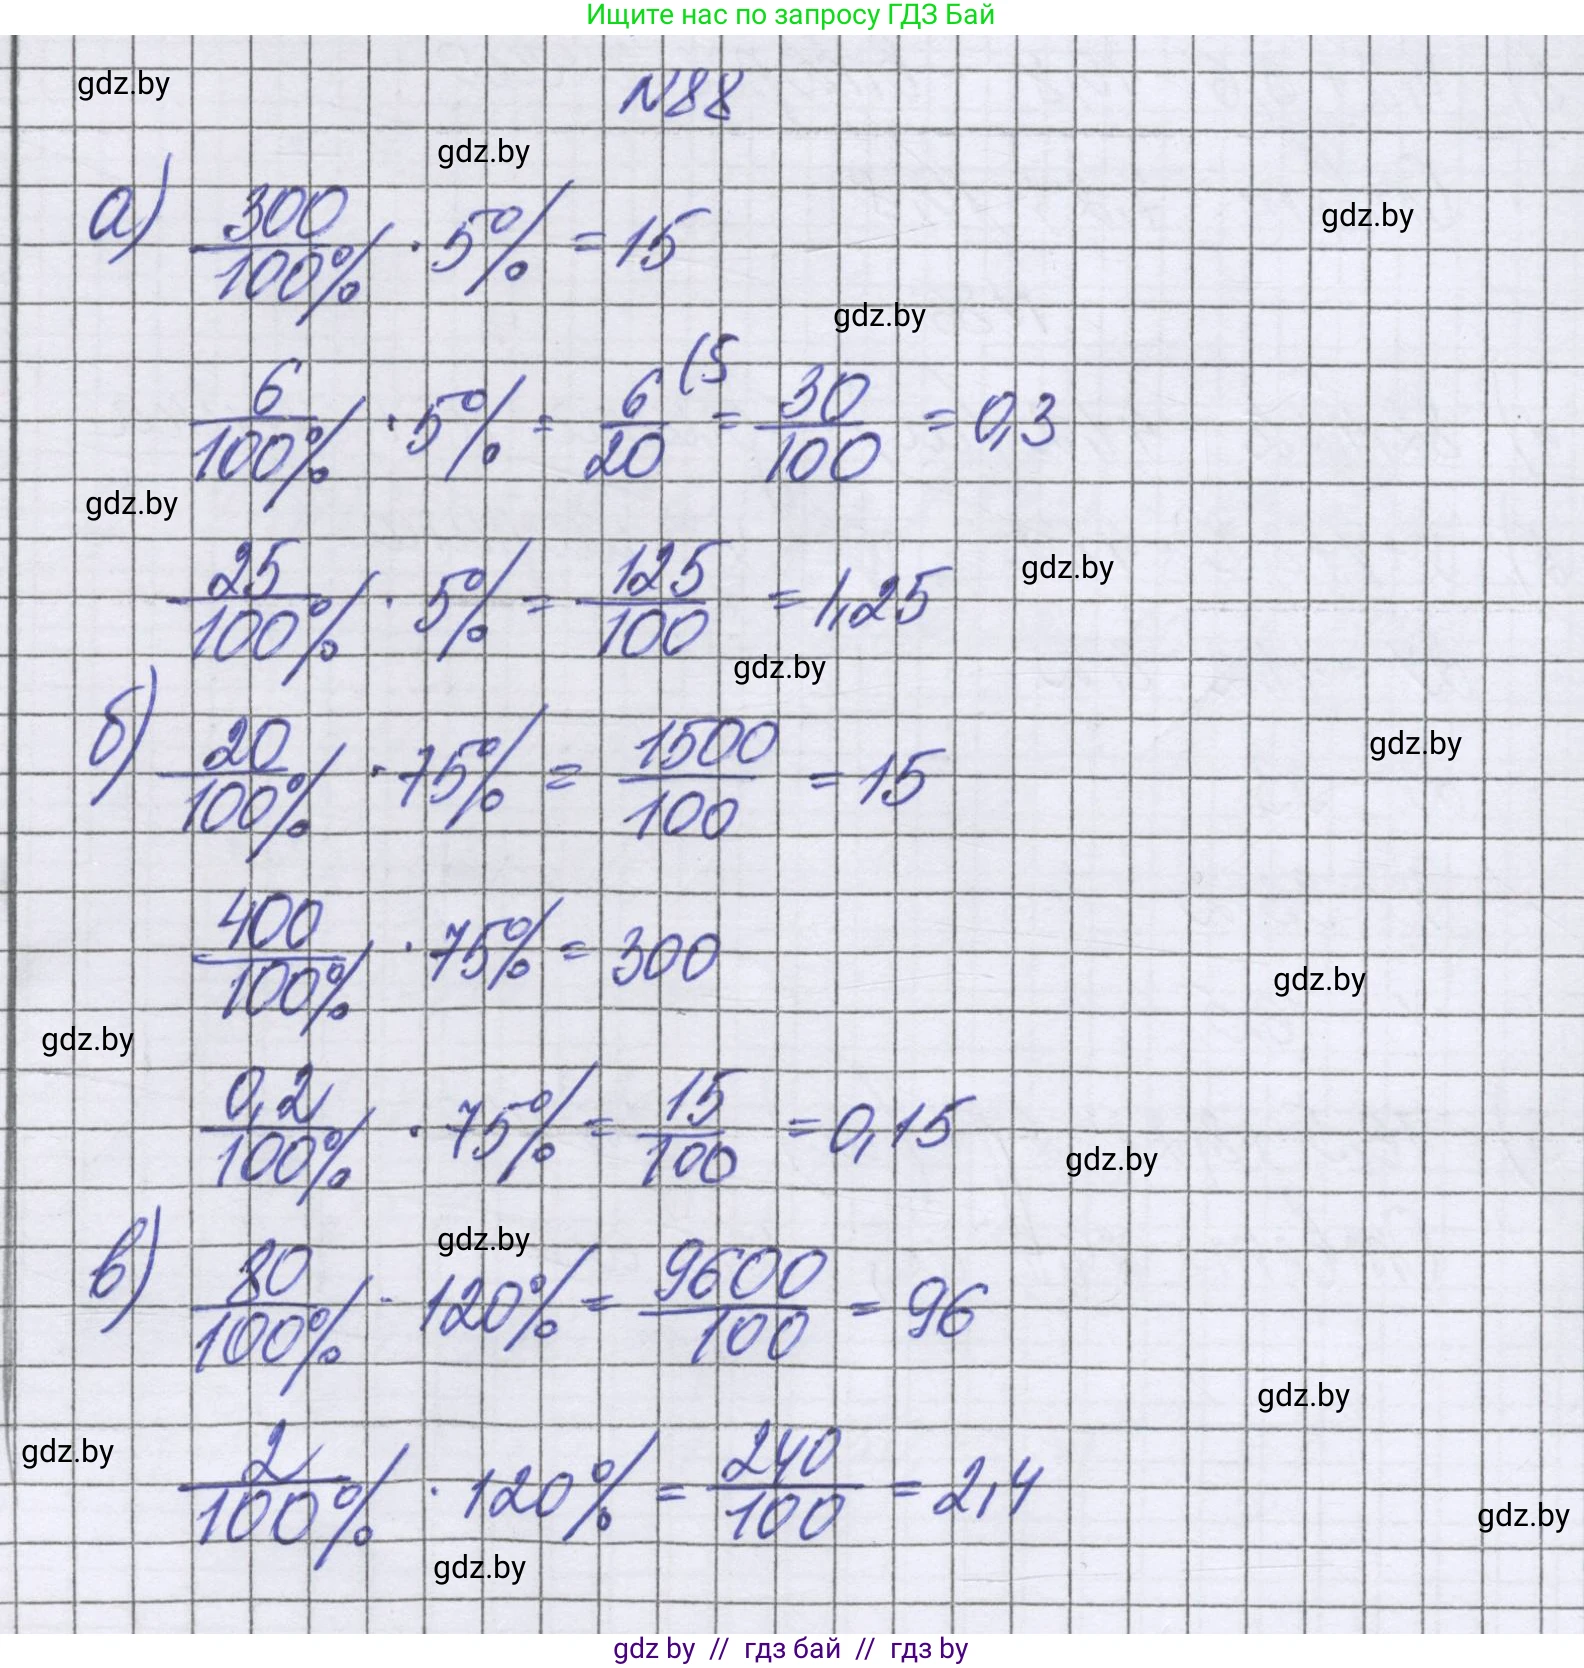 Ищите нас по запросу ГДЗ Бай
gdz.by
N88
gdz.by
а) 300/100% · 5% = 15
gdz.by
gdz.by
6/100% · 5% = 6/20 (5 = 30/100 = 0,3
gdz.by
25/100% · 5% = 125/100 = 1,25
gdz.by
gdz.by
б) 20/100% · 75% = 1500/100 = 15
gdz.by
400/100% · 75% = 300
gdz.by
gdz.by
0,2/100% · 75% = 15/100 = 0,15
gdz.by
gdz.by
в) 80/100% · 120% = 9600/100 = 96
gdz.by
gdz.by
2/100% · 120% = 240/100 = 2,4
gdz.by
gdz.by
gdz by // гдз бай // гдз by